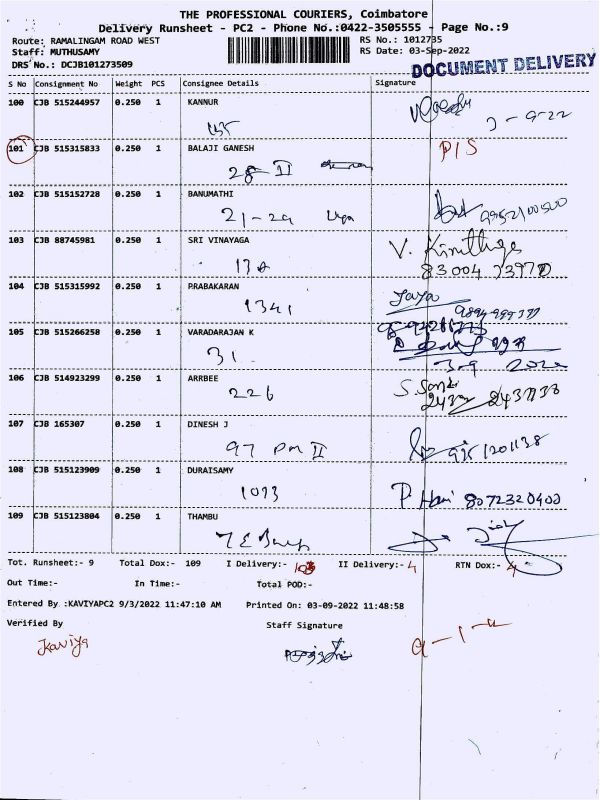 THE PROFESSIONAL COURIERS, Coimbatore
Delivery Runsheet - PC2 - Phone No.:0422-3505555 - Page No.:9
Route: RAMALINGAM ROAD WEST RS No.: 1012735
Staff: MUTHUSAMY RS Date: 03-Sep-2022
DRS No.: DCJB101273509
DOCUMENT DELIVERY
S No Consignment No Weight PCS Consignee Details Signature
100 CJB 515244957 0.250 1 KANNUR
101 CJB 515315833 0.250 1 BALAJI GANESH P/S
28 II
102 CJB 515152728 0.250 1 BANUMATHI
21-29
103 CJB 88745981 0.250 1 SRI VINAYAGA
104 CJB 515315992 0.250 1 PRABAKARAN Jaya
1341
105 CJB 515266250 0.250 1 VARADARAJAN K
31
106 CJB 514923299 0.250 1 ARRBEE
226
107 CJB 165307 0.250 1 DINESH J
97 PM II
108 CJB 515123909 0.250 1 DURAISAMY
1093 P. Hari 8072320400
109 CJB 515123804 0.250 1 THAMBU
Tot. Runsheet:- 9 Total Dox:- 109 I Delivery:- II Delivery:- 4 RTN Dox:- 4
Out Time:- In Time:- Total POD:-
Entered By :KAVIYAPC2 9/3/2022 11:47:10 AM Printed On: 03-09-2022 11:48:58
Verified By Staff Signature
Kaviya